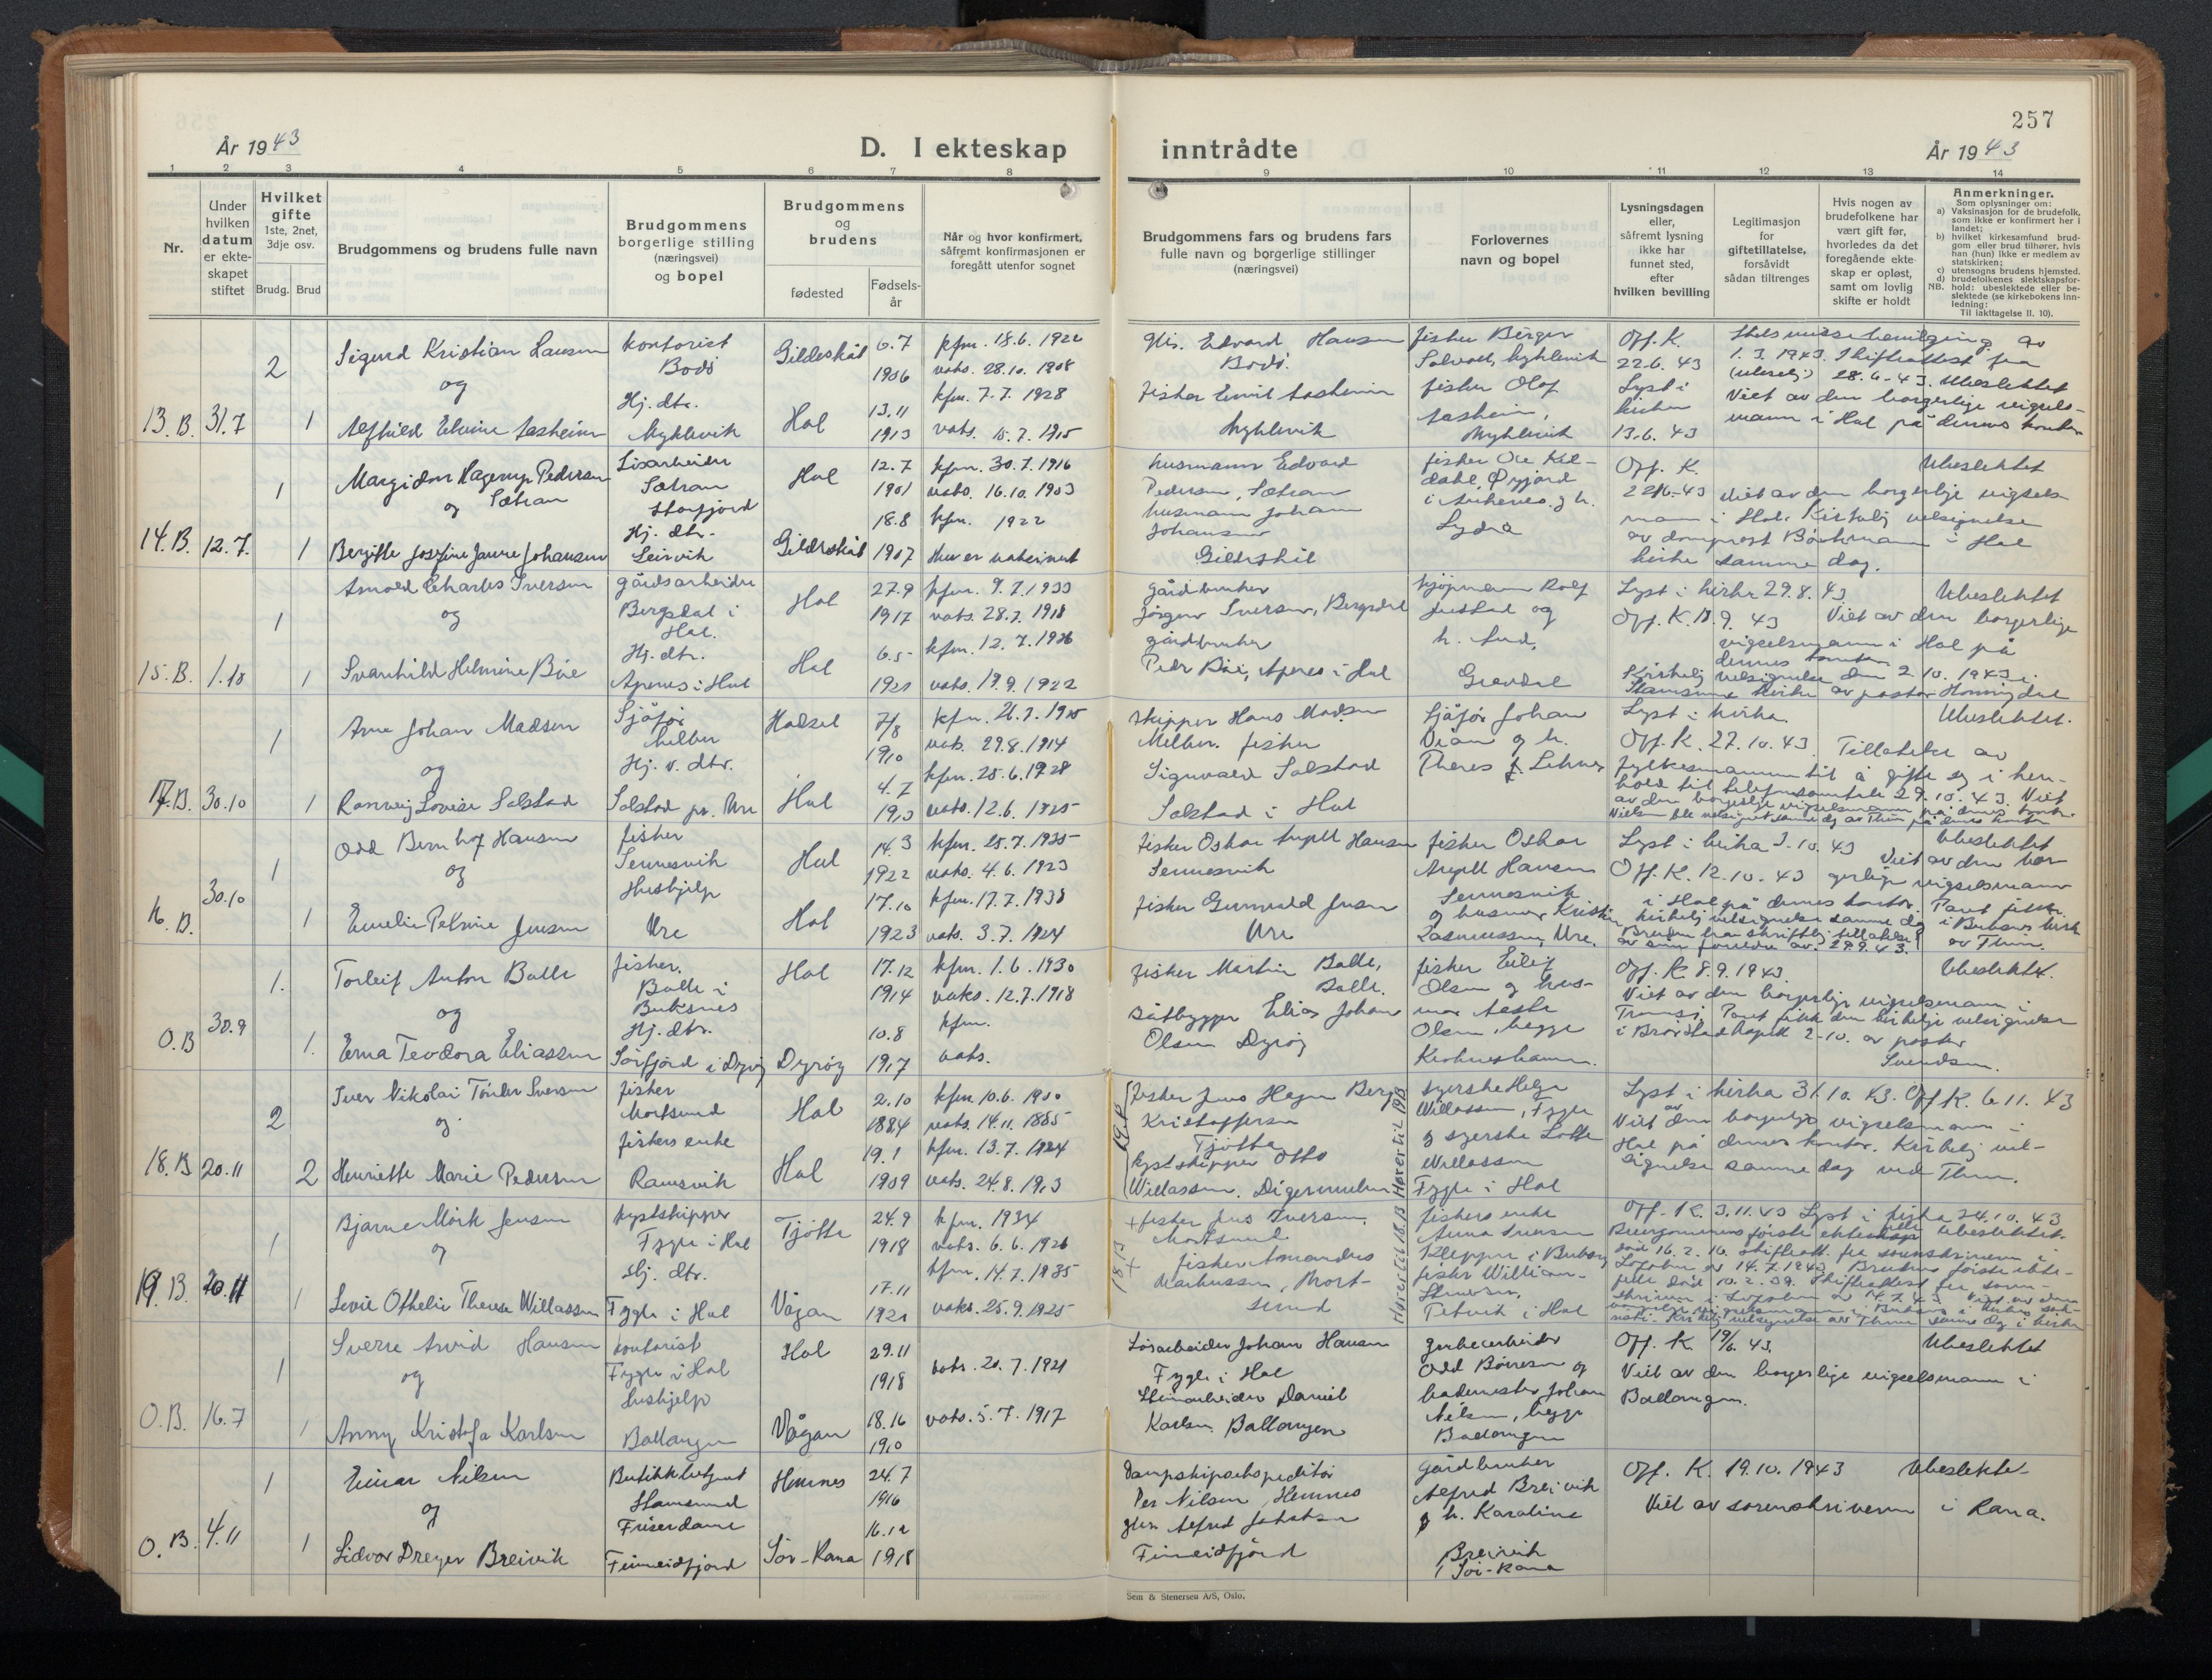 257
År 1943
D. I ekteskap inntrådte
År 1943
1 2 3 4 5 6 7 8 9 10 11 12 13 14
Nr.
Under hvilken datum er ekteskapet stiftet
Hvilket gifte
1ste, 2net, 3dje osv.
Brudg. Brud
Brudgommens og brudens fulle navn
Brudgommens borgerlige stilling (næringsvei) og bopel
Brudgommens og brudens
fødested
Fødsels-år
Når og hvor konfirmert, såfremt konfirmasjonen er foregått utenfor sognet
Brudgommens fars og brudens fars fulle navn og borgerlige stillinger (næringsvei)
Forlovernes navn og bopel
Lysningsdagen eller, såfremt lysning ikke har funnet sted, efter hvilken bevilling
Legitimasjon for giftetillatelse, forsåvidt sådan tiltrenges
Hvis nogen av brudefolkene har vært gift før, hvorledes da det foregående ekteskap er opløst, samt om lovlig skifte er holdt
Anmerkninger.
Som oplysninger om:
a) Vaksinasjon for de brudefolk, som ikke er konfirmert her i landet;
b) hvilket kirkesamfund brudgom eller brud tilhører, hvis han (hun) ikke er medlem av statskirken;
c) utensogns brudens hjemsted.
d) brudefolkenes slektskapsforhold: ubeslektede eller beslektede (se kirkebokens innledning:
NB.
Til iakttagelse II. 10).
13. B. 31.7 2 1
Sigurd Kristian Hansen
og
Alfhild Elvine Aasheim
kontorist
Bodö
Hj. dtr.
Myklevik
Gildeskål
Hol
6.7
1906
13.11
1913
kfm. 18.6. 1922
vaks. 28.10. 1908
kfm. 7.7. 1928
vaks. 15.7. 1915
Edvard Hansen
Bodö.
fisker Emil Aasheim
Myklevik
fisker Birger
Solvoll, Myklevik
fisker Olaf
Aasheim,
Myklevik
Off. K.
22.6. 43
Lyst i
kirken
13.6. 43
1.3. 1943. Skifteattest fra
28.6-43. Ubeslektet
Viet av den borgerlige vigsels-
mann i Hol på dennes kontor
14. B. 12.7. 1 1
Margidon Hagerup Pedersen
og Sætran
Bergitte Josefine Jaure Johansen
Lösarbeider
Sætran
Storfjord
Hj. dtr.
Leirvik
Hol
Gildeskål
12.7
1901
18.8
1907
kfm. 30.7. 1916
vaks. 16.10. 1903
kfm. 1922
Hun er vaksinert
husmann Edvard
Pedersen, Sætran
husmann Johan
Johansen
Gildeskål
fisker Ole Kil-
dahl, Öyjord
Off. K.
22/6-43
Ubeslektet
Viet av den borgerlige vigsels-
mann i Hol. Kirkelig velsignelse
av domprost Bachmann i Hol
kirke samme dag.
15. B. 1.10 1 1
Arnold Charles Iversen
og
Svanhild Helmine Böe
gårdsarbeider
Bergsdal i
Hol.
Hj. dtr.
Apenes i Hol
Hol
Hol
27.9
1917
6.5
1921
kfm. 9.7. 1933
vaks. 28.7. 1918
kfm. 12.7. 1936
vaks. 19.9. 1922
gårdbruker
Jörgen Iversen, Bergsdal
gårdbruker
Peder Böe, Apenes i Hol
kjöpmann Rolf
Justad og
h. Aud,
Gravdal
Lyst i kirka 29.8. 43
Off. K. 18.9. 43
Ubeslektet
Viet av den borgerlige
vigselsmann i Hol på
dennes kontor
Kirkelig velsignelse den 2.10. 1943 i
Stamsund kirke av pastor Honningdal
17. B. 30.10 1 1
Arne Johan Madsen
og
Ranveig Lovise Solstad
Sjåför
Melbu
Hj. v. dtr.
Solstad pr. Ure
Hadsel
Hol
7/8
1910
4.7
1913
kfm. 26.7. 1925
vaks. 29.8. 1914
kfm. 25.6. 1928
vaks. 12.6. 1925
Skipper Hans Madsen
Melbu. fisker
Sigurald Solstad
Solstad i Hol
Sjåför Johan
Lyst i kirka.
Off. K. 27.10. 43.
Ubeslektet.
Tillatelse av
fylkesmannen til å gifte seg i hen-
hold til telefonsamtale 29.10. 43. Viet
av den borgerlige vigselsmann på dennes kontor
16. B. 30.10 1 1
Odd Bernhof Hansen
og
Emelie Petrine Jensen
fisker
Sennesvik
Hushjelp
Ure
Hol
Hol
14.3
1922
17.10
1923
kfm. 25.7. 1935
vaks. 4.6. 1923
kfm. 17.7. 1938
vaks. 3.7. 1924
fisker Oskar Angell Hansen
Sennesvik
fisker Gunvald Jensen
Ure
fisker Oskar
Angell Hansen
Sennesvik
og husmor Kristin
Rasmussen, Ure.
Lyst i kirka 3.10. 43
Off. K. 12.10. 43
Ubeslektet
Viet av den bor-
gerlige vigselsmann
i Hol på dennes kontor.
kirkelig velsignelse samme dag
Bruden har skriftlig tillatelse
av sine foreldre av. 29.9. 43.
O.B 30.9 1. 1.
Torleif Anton Balle
og
Erna Teodora Eliassen
fisker.
Balle i
Buksnes
Hj. dtr.
Sörfjord i Dyröy
Hol
Dyröy
17.12
1914
10.8
1917
kfm. 1.6. 1930
vaks. 12.7. 1918
kfm.
vaks.
fisker Martin Balle,
Balle.
båtbygger Elias Johan
Olsen Dyröy
fisker Eilif
Olsen og hus-
mor Aasta
Olsen, begge
Kirkneshamn.
Off. K. 8.9. 1943.
Ubeslektet.
Viet av den borgerlige vigselsmann i
Tranöy. Paret fikk den kirkelige velsignelse
i Bröstad kapell 2-10. av pastor
Svendsen.
18. B 20.11 2 2
Iver Nikolai Tönder Iversen
og
Henriette Marie Pedersen
fisker
Mortsund
fiskers enke
Ramsvik
Hol
Hol
2.10
1884
19.1
1909
kfm. 10.6. 1900
vaks. 14.11. 1885
kfm. 13.7. 1924
vaks. 24.8. 1913
19 B
fisker Jens Hagen Berg
Kristoffersen
Tjötta
kystskipper Otto
Willassen. Digermulen
Hører til 19B
syerske Helga
Willassen, Fygle
og syerske Lotte
Willassen
Fygle i Hol
Lyst i kirka 31.10. 43. Off. K. 6.11. 43
Viet av den borgerlige vigselsmann i
Hol på dennes kontor. Kirkelig vel-
signelse samme dag ved Thun.
19. B. 20.11 1 1
Bjarne Mörk Jensen
og
Levie Othelie Therese Willassen
kystskipper
Fygle i Hol
Hj. dtr.
Fygle i Hol
Tjötta
Vågan
24.9
1918
17.11
1921
kfm. 1934
vaks. 6.6. 1926
kfm. 14.7. 1935
vaks. 25.9. 1925
18 B
fisker Jens Iversen.
Mortsund
fisker Amandus
Markussen, Mort-
sund
Hører til 18.B
fiskers enke
Anna Iversen
fisker William
Tetvik i Hol
Off. K. 3.11.43 Lyst i kirka 24.10. 43
Brudgommens förste ektefelle
Ubeslektet.
död 16.2. 10.
O.B. 16.7 1 1
Sverre Arvid Hansen
og
Anny Kristofa Karlsen
kontorist
Fygle i Hol
hushjelp
Ballangen
Hol
Vågan
29.11
1918
18.16
1910
vaks. 20.7. 1921
vaks. 5.7. 1917
Lösarbeider Johan Hansen
Fygle i Hol
Stenarbeider Daniel
Karlsen. Ballangen
grubearbeider
Odd Börresen og
bademester Johan
Nilsen, begge
Ballangen
Off. K 19/6. 43.
Ubeslektet
Viet av den borgerlige vigselsmann i
Ballangen.
O. B. 4.11 1 1
Einar Nilsen
og
Lidvor Dreyer Breivik
Butikkbetjent
Stamsund
Friserdame
Finneidfjord
Hemnes
Sör-Rana
24.7
1916
16.12
1918
Dampskipsekspeditör
Per Nilsen, Hemnes
Finneidfjord
Gårdbruker
Alfred Breivik
og h. Karoline
Breivik
i Sör-Rana
Off. K. 19.10. 1943
Ubeslekte
Viet av sorenskriveren i Rana.
Sem & Stenersen A/S, Oslo.